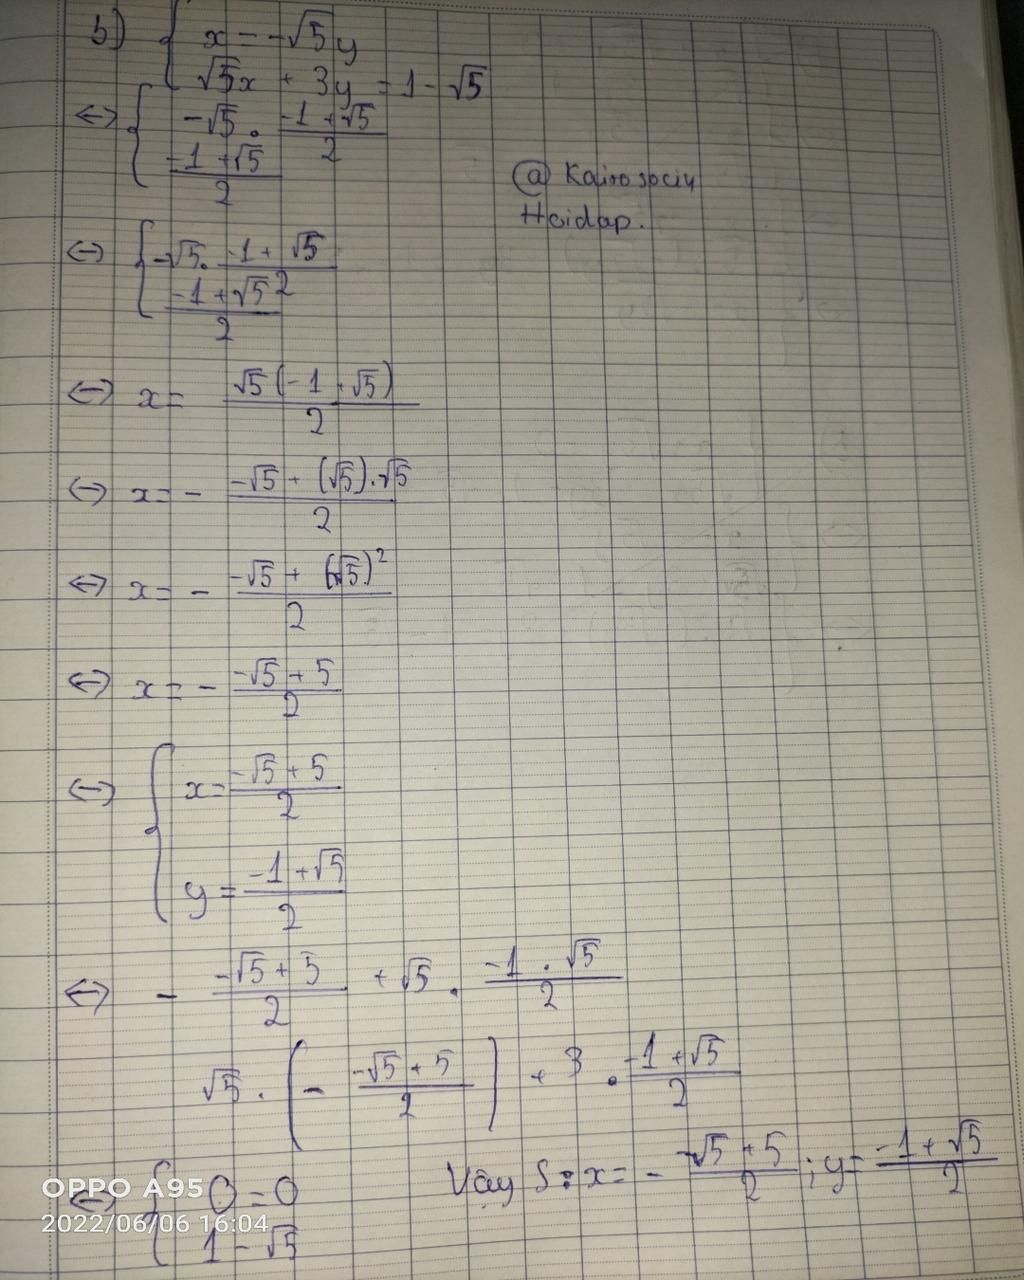 b) { x = -√5 y
√5x + 3y = 1 - √5
<-> { -√5 . (-1 + √5)/2
(-1 + √5)/2
@ Kairosociu
Hoidap.
<-> { -√5 . (-1 + √5)/2
(-1 + √5)/2
<-> x = √5(-1 + √5)/2
<-> x = - (-√5 + (√5).√5)/2
<-> x = - (-√5 + (√5)²)/2
<-> x = - (-√5 + 5)/2
<-> { x = (-√5 + 5)/2
y = (-1 + √5)/2
<-> - (-√5 + 5)/2 + √5 . (-1 . √5)/2
√5 . (- (-√5 + 5)/2) + 3 . (-1 + √5)/2
Vậy S : x = - (-√5 + 5)/2 ; y = (-1 + √5)/2
<-> { 0 = 0
1 - √5
OPPO A95
2022/06/06 16:04